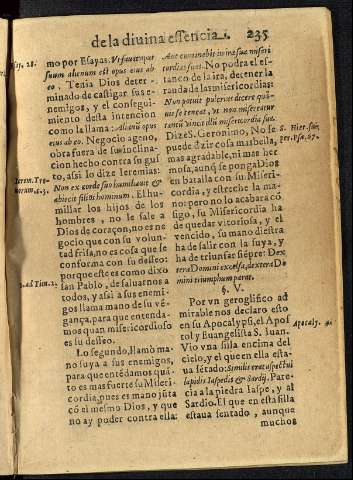 de la diuina essencia.
235
mo por Esayas. Vt faciat opus
suum alienum est opus eius ab
eo. Tenia Dios deter-
minado de castigar sus e-
nemigos, y el consegui-
miento desta intencion
como la llama: Alienũ opus
eius ab eo. Negocio ageno,
obra fuera de su inclina-
cion hecho contra su gus
to, assi lo dize Ieremias:
Non ex corde suo humiliauit &
abiecit filios hominum. El hu-
millar los hijos de los
hombres, no le sale a
Dios de coraçon, no es ne
gocio que con su volun-
tad frisa, no es cosa que se
conforma con su desseo:
porque este es como dixo
san Pablo, de saluarnos a
todos, y assi a sus enemi-
gos llama mano de su vẽ-
gança, para que entenda-
mos quan misericordioso
es su desseo.
Lo segundo, llamò ma
no suya a sus enemigos,
para que entẽdamos quã-
to es mas fuerte su Miseri
cordia, pues es mano jũta
cõ el mesmo Dios, y que
no ay poder contra ella:
Aut continebit in ira sua miseri
cordias suas. No podra el es-
tanco de la ira, detener la
rauda de las misericordias:
Dize S. Geronimo, No se
puede dezir cosa mas bella,
mas agradable, ni mas her
mosa, aunq̃ se ponga Dios
en batalla con su Miseri-
cordia, y estreche la ma-
no: pero no la acabara cõ
sigo, su Misericordia ha
de quedar vitoriosa, y el
vencido, su mano diestra
ha de salir con la suya, y
ha de triunfar siẽpre: Dex
tera Domini excelsa, dextera Do
mini triumphum parat.
§. V.
Por vn geroglifico ad
mirable nos declaro esto
en su Apocalypsi, el Apos
tol y Euangelista S. Iuan.
Vio vna silla encima del
cielo, y el que en ella esta-
ua sẽtado: Similis erat aspectui
lapidis Iaspidis & Sardij. Pare-
cia a la piedra Iaspe, y al
Sardio. El que en esta silla
estaua sentado, aunque
muchos
Ierem. Tre-
norum. c. 3.
1. ad Tim. 2.
S. Hier. sup.
Apocaly. 4.